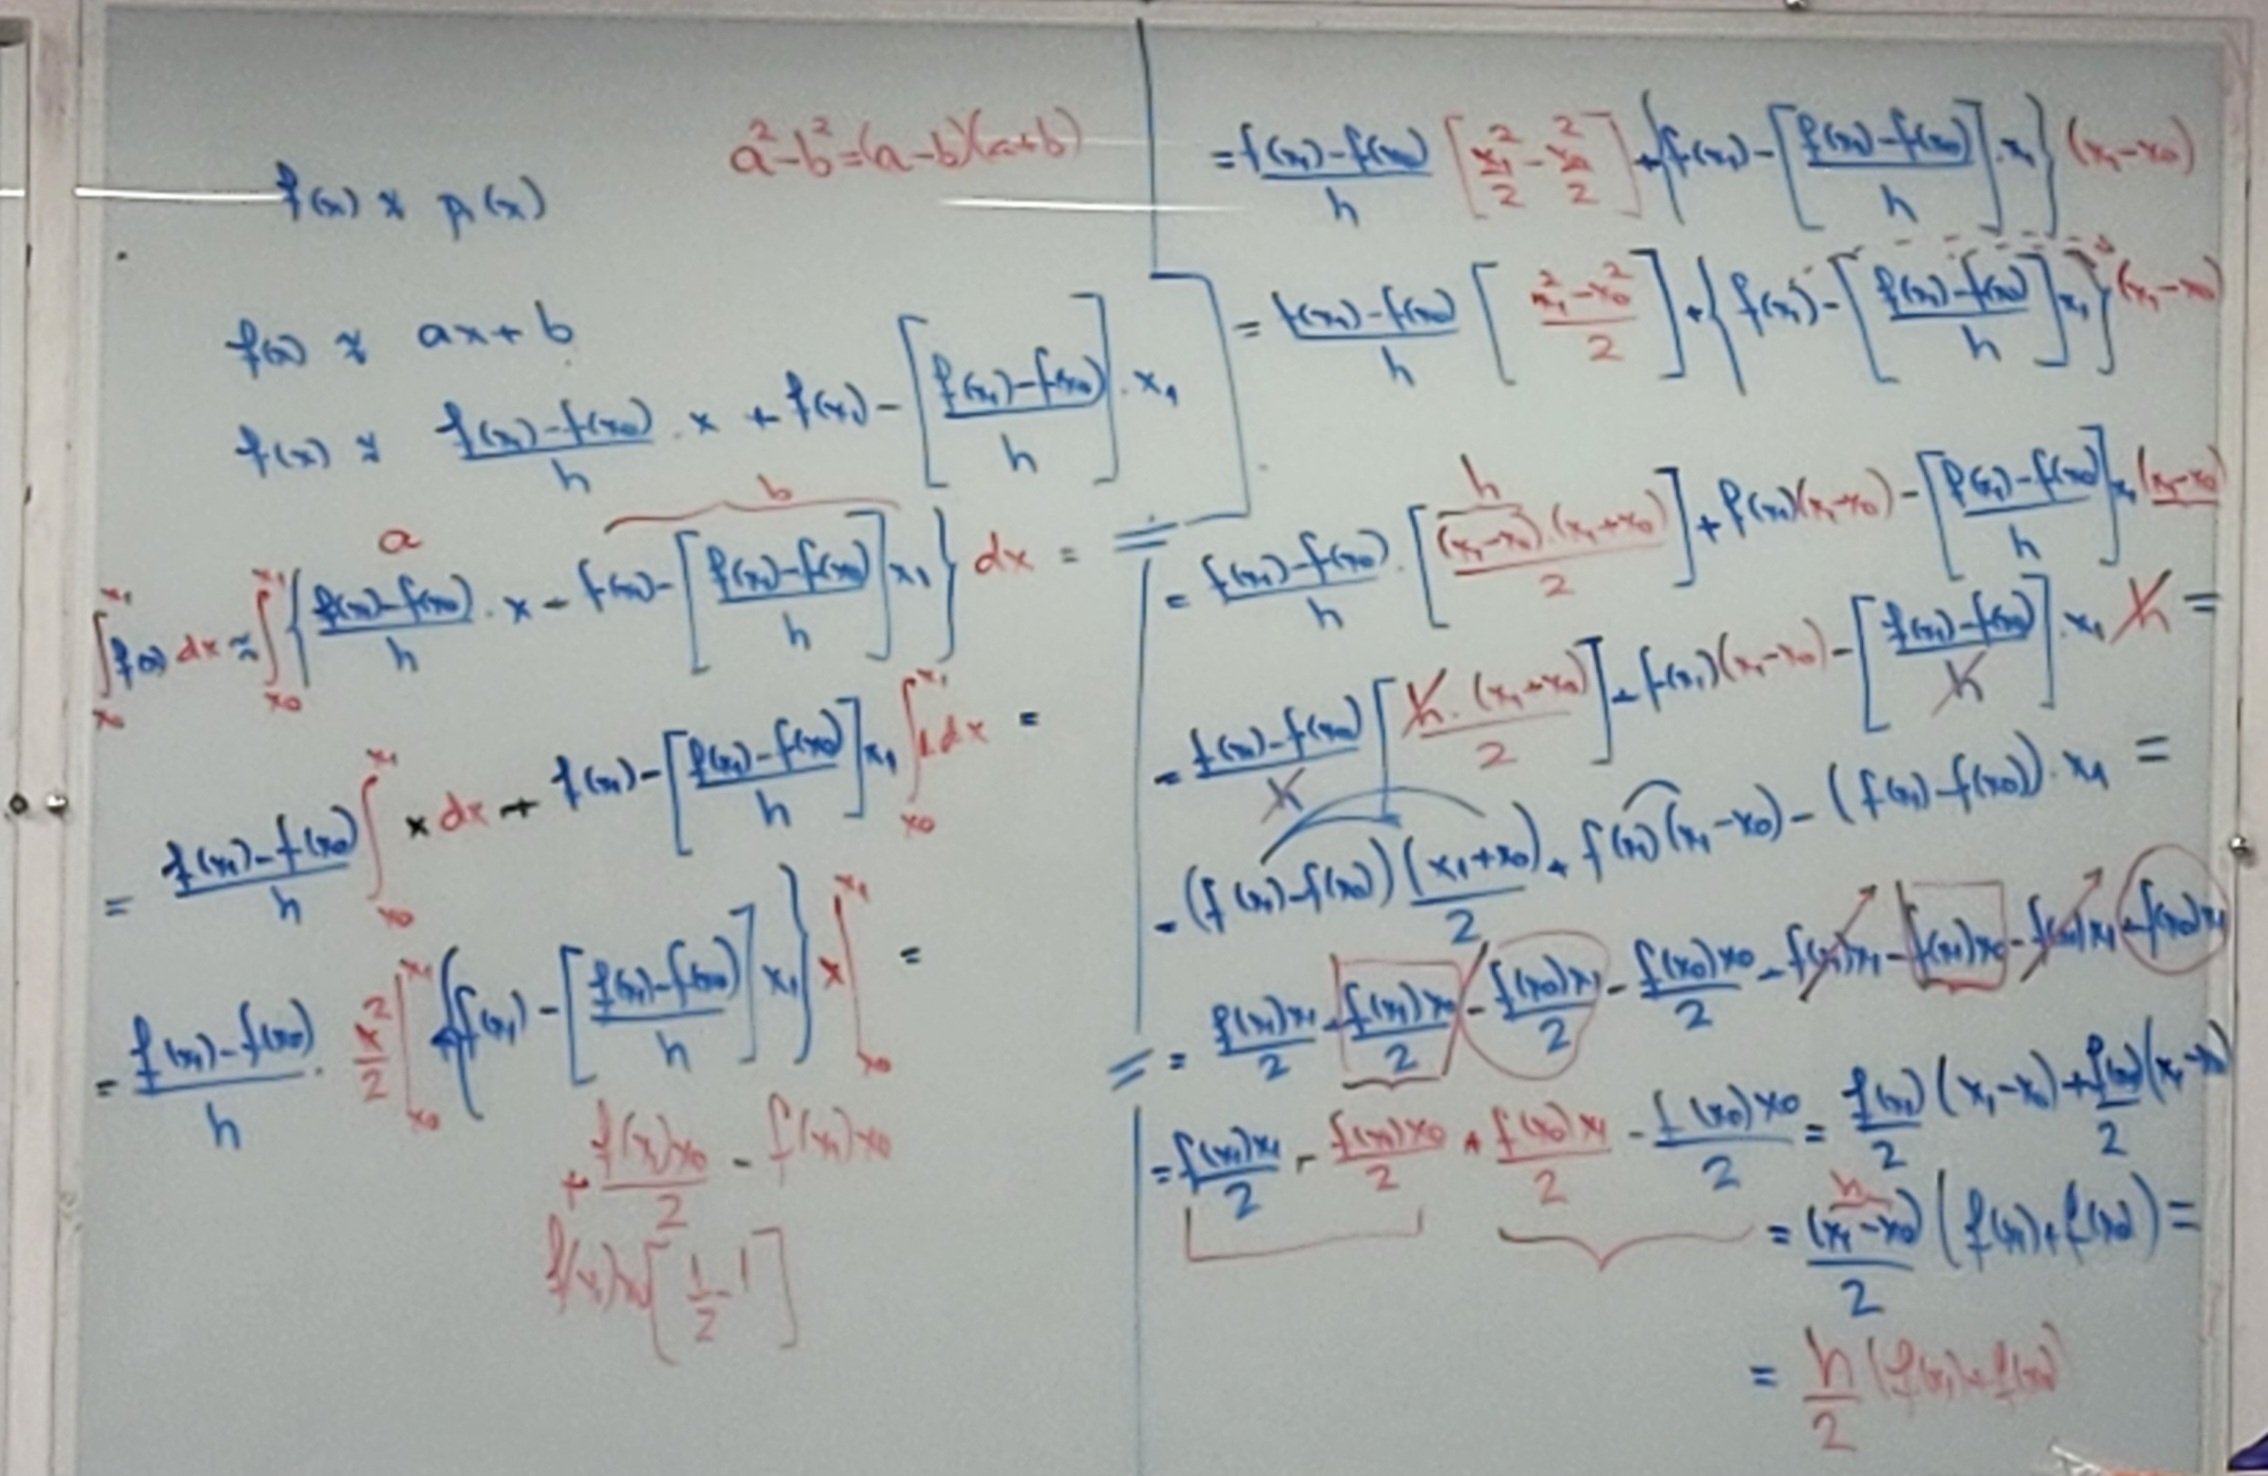 a²-b²=(a-b)(a+b)
f(x) ≈ p₁(x)
f(x) ≈ ax+b
f(x) ≈ (f(x₁)-f(x₀))/h · x + f(x₁) - [(f(x₁)-f(x₀))/h] · x₁
a b
∫_{x₀}^{x₁} f(x) dx ≈ ∫_{x₀}^{x₁} { (f(x₁)-f(x₀))/h · x + f(x₁) - [(f(x₁)-f(x₀))/h] x₁ } dx =
= (f(x₁)-f(x₀))/h ∫_{x₀}^{x₁} x dx + f(x₁) - [(f(x₁)-f(x₀))/h] x₁ ∫_{x₀}^{x₁} 1 dx =
= (f(x₁)-f(x₀))/h · x²/2 |_{x₀}^{x₁} + {f(x₁) - [(f(x₁)-f(x₀))/h] x₁} x |_{x₀}^{x₁} =
+ f(x₁)x₀/2 - f(x₁)x₀
f(x₁)x₀ [1/2 - 1]
= (f(x₁)-f(x₀))/h [x₁²/2 - x₀²/2] + {f(x₁) - [(f(x₁)-f(x₀))/h] · x₁} (x₁-x₀)
= (f(x₁)-f(x₀))/h [(x₁²-x₀²)/2] + {f(x₁) - [(f(x₁)-f(x₀))/h] x₁} (x₁-x₀)
h
= (f(x₁)-f(x₀))/h · [(x₁-x₀)·(x₁+x₀)/2] + f(x₁)(x₁-x₀) - [(f(x₁)-f(x₀))/h] x₁ (x₁-x₀)
= (f(x₁)-f(x₀))/h [h·(x₁+x₀)/2] + f(x₁)(x₁-x₀) - [(f(x₁)-f(x₀))/h] · x₁ h =
= (f(x₁)-f(x₀)) (x₁+x₀)/2 + f(x₁)(x₁-x₀) - (f(x₁)-f(x₀)) · x₁ =
= f(x₁)x₁/2 + f(x₁)x₀/2 - f(x₀)x₁/2 - f(x₀)x₀/2 + f(x₁)x₁ - f(x₁)x₀ - f(x₁)x₁ + f(x₀)x₁
= f(x₁)x₁/2 - f(x₁)x₀/2 + f(x₀)x₁/2 - f(x₀)x₀/2 = f(x₁)/2 (x₁-x₀) + f(x₀)/2 (x₁-x₀)
h
= (x₁-x₀)/2 (f(x₁)+f(x₀)) =
= h/2 (f(x₁)+f(x₀))